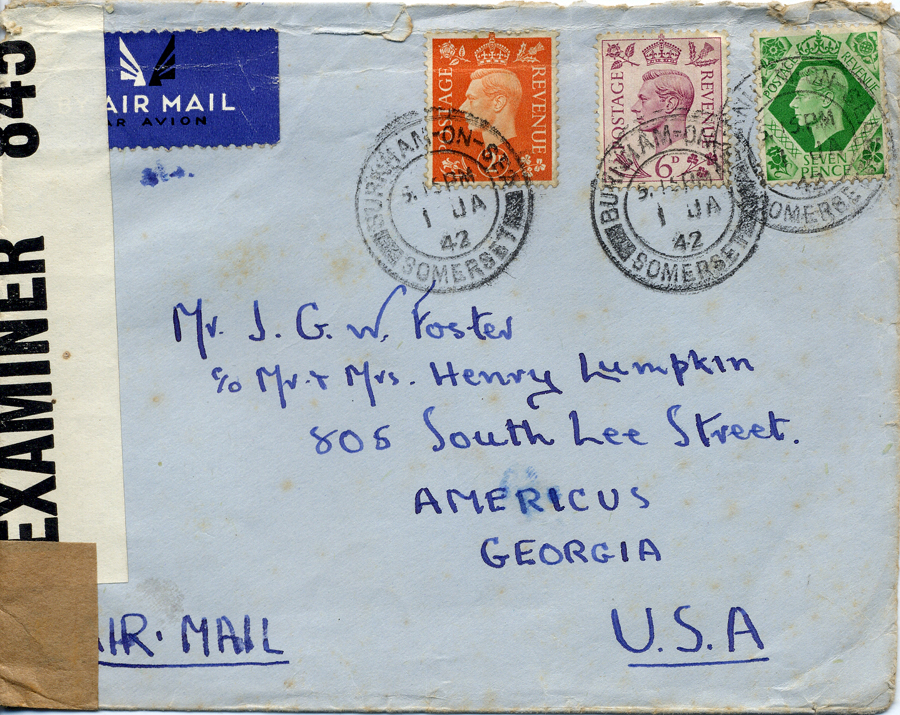 EXAMINER 845
BY AIR MAIL
PAR AVION
POSTAGE REVENUE
POSTAGE REVENUE
6D
POSTAGE REVENUE
SEVEN
PENCE
BURNHAM-ON-SEA
5.15PM
1 JA
42
SOMERSET
BURNHAM-ON-
5.15PM
1 JA
42
SOMERSET
ON
5PM
42
SOMERSET
Mr. J. G. W. Foster
c/o Mr. + Mrs. Henry Lumpkin
805 South Lee Street.
AMERICUS
GEORGIA
AIR. MAIL
U.S.A